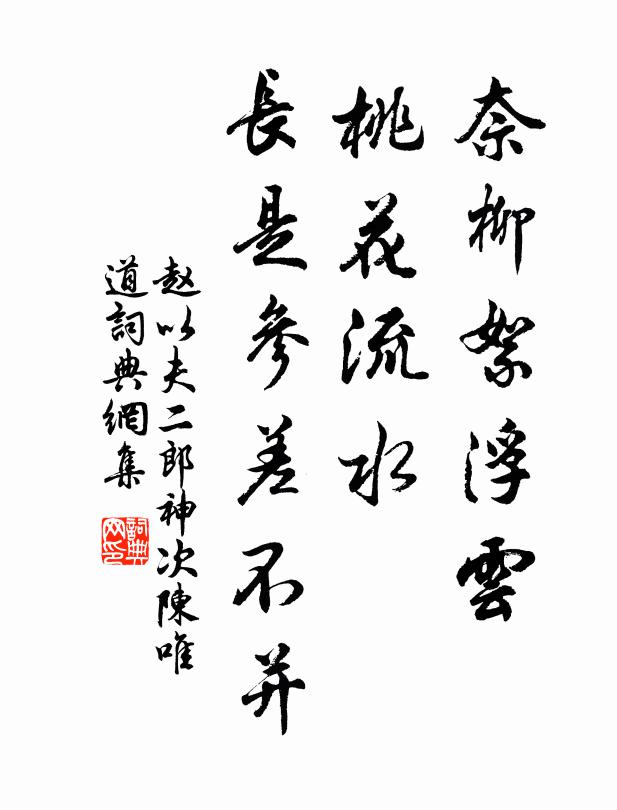 奈柳絮浮雲
桃花流水
長是參差不并
赵以夫二郎神次陳唯
道詞典網集
詞典网印